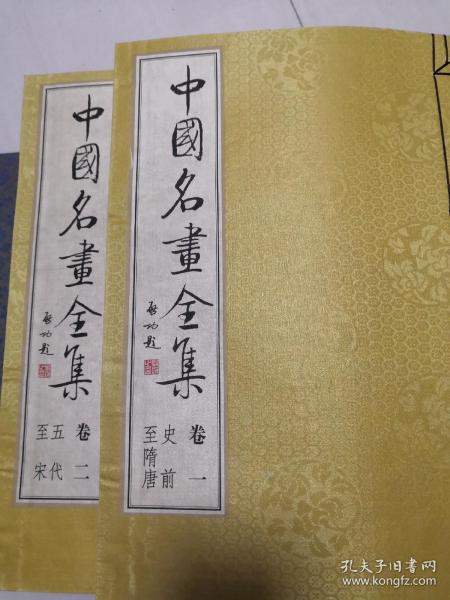 中國名畫全集
啟功題
卷一
史前
至隋唐
中國名畫全集
啟功題
卷二
五代
至宋
孔夫子旧书网
www.kongfz.com